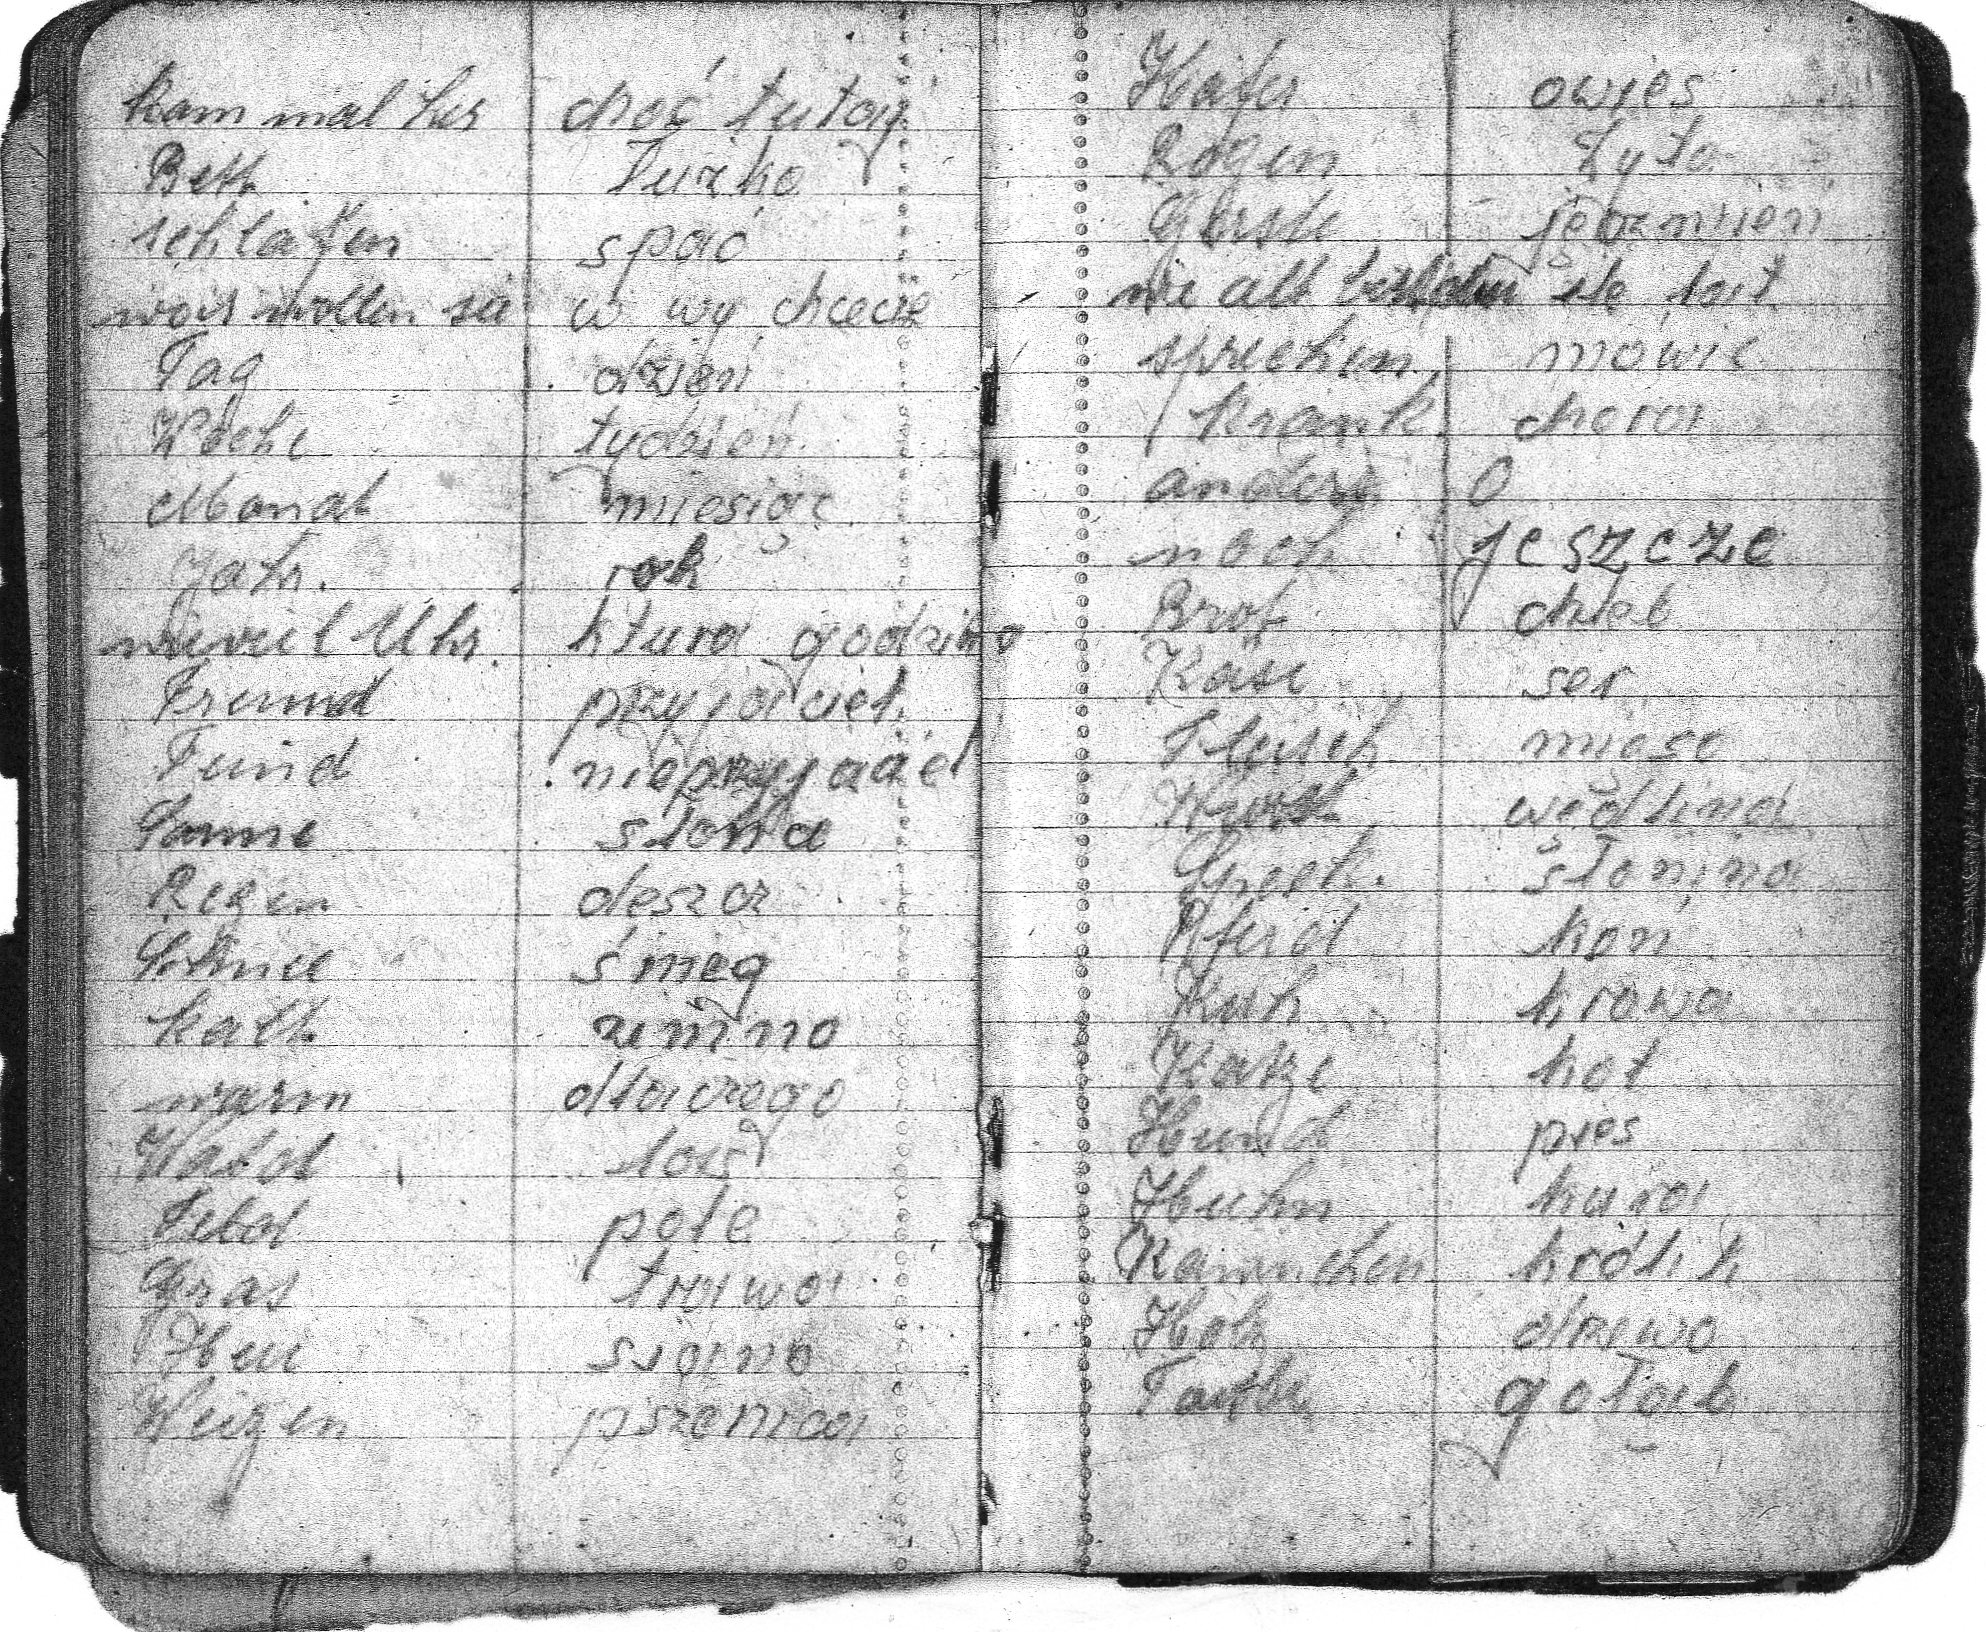 kam mal her choć tutaj
Bett łużko
schlafen spać
was wollen sie w wy chcecie
Tag dzień
Woche tydzień
Monat miesiąc
Jahr. rok
wieviel Uhr. ktura godzina
Freund przyjaciel
Feind nieprzyjaciel
Sonne słonce
Regen deszcz
Schnee śnieg
kalt zimno
warm dlaczego
Wald las
Feld pole
Gras trawa
Heu siano
Weizen pszenica
Hafer owies
Rogen żyto
Gerste jęczmień
wie alt sto lat
sprechen mówic
krank chora
anders O
noch jeszcze
Brot chleb
Käse ser
Fleisch mięso
Wurst wędlina
Speck. słonina
Pferd koń
Kuh krowa
Katze kot
Hund pies
Huhn kura
Kaninchen królik
Holz drzewo
Taube gołąb